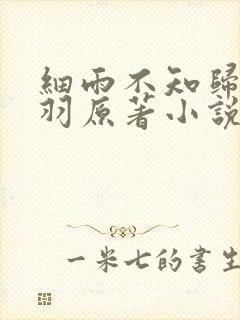 細雨不知歸
羽原著小說
一米七的書生